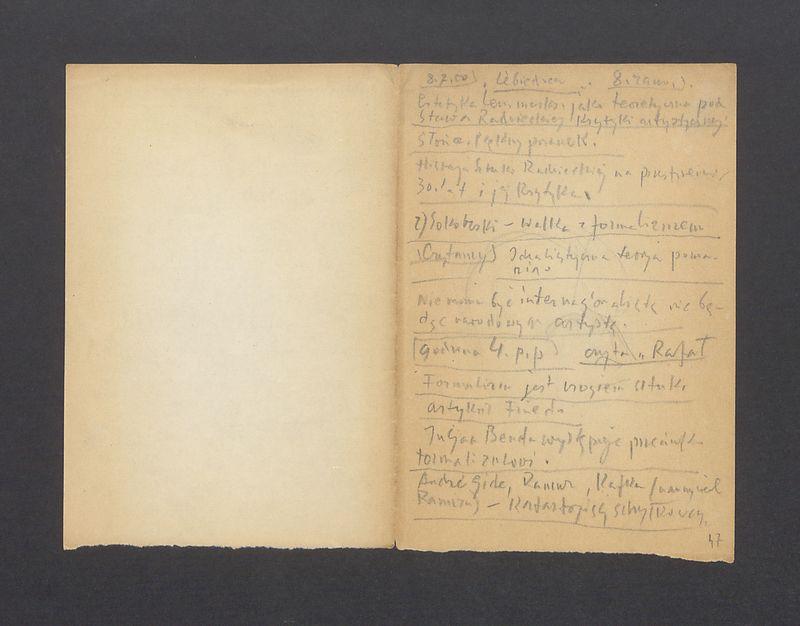 8.7.50) „Lebiediew”. 8. rano.).
Estetyka Len. marks. jako teoretyczna pod
stawa Radzieckiej Krytyki artystycznej
Słońce. Piękny poranek.
Historja Sztuki Radzieckiej na przestrzeni
30. lat i jej Krytyka.
2) Sokolski – walka z formalizmem
(Czytamy) Idealistyczna teorja pozna-
nia
Nie można być internacjonalistą nie bę-
dąc narodowym artystą.
godzina 4. p.p) czyta „Rafał
Formalizm jest wrogiem sztuki
artykuł
Juljan Benda występuje przeciwko
formalizmowi.
André Gide, Kafka
– Katastrofiści schyłkowcy.
47